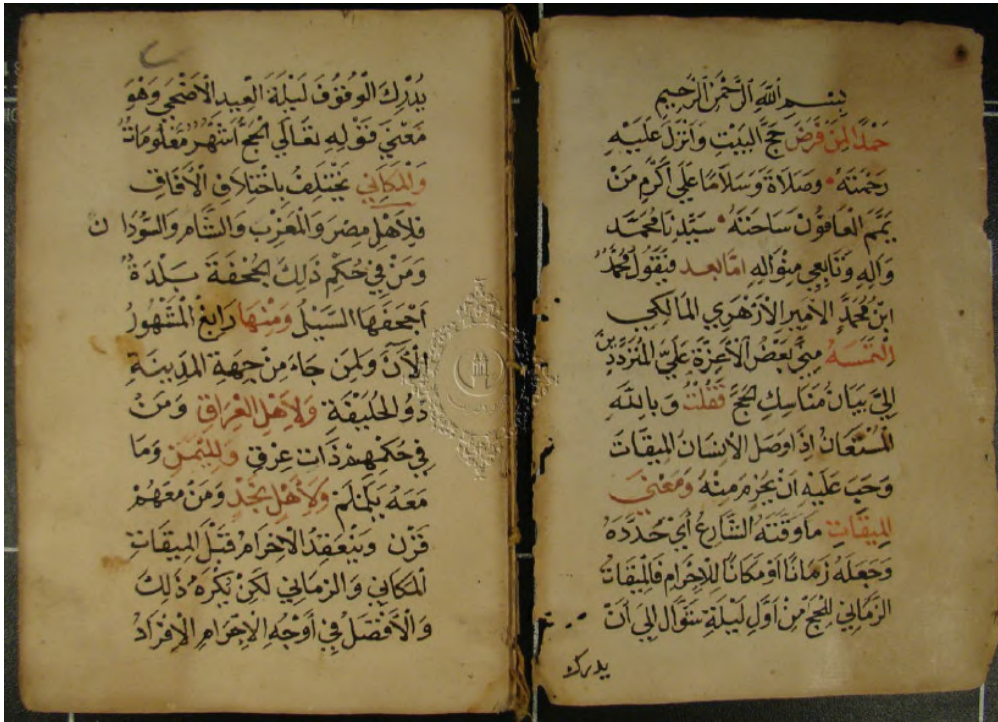 بِسْمِ اللَّهِ الرَّحْمَنِ الرَّحِيمِ
حَمْدًا لِمَنْ فَرَضَ حَجَّ الْبَيْتِ وَأَنْزَلَ عَلَيْهِ
رَحْمَتَهُ وَصَلَاةً وَسَلَامًا عَلَى أَكْرَمِ مَنْ
يَمَّمَ الْعَافُونَ سَاحَتَهُ سَيِّدِنَا مُحَمَّد
وَآلِهِ وَتَابِعِي مِنْوَالِهِ امَّا بَعد فَيَقُولُ مُحَمَّدُ
ابْنُ مُحَمَّدٍ الأَمِيرِ الأَزْهَرِي المَالِكِي
الْتَمَسَ مِنِّي بَعْضُ الْأَعِزَّةِ عَلَيَّ الْمُتَرَدِّدِينَ
إِلَيَّ بَيَانَ مَنَاسِكِ الْحَجِّ فَقُلْتُ وَبِاللَّهِ
الْمُسْتَعَانُ إِذَا وَصَلَ الْإِنْسَانُ الْمِيقَاتَ
وَجَبَ عَلَيْهِ أَنْ يُحْرِمَ مِنْهُ وَمَعْنَى
الْمِيقَاتِ مَا وَقَّتَهُ الشَّارِعُ أَيْ حَدَّدَهُ
وَجَعَلَهُ زَمَانًا أَوْ مَكَانًا لِلْإِحْرَامِ فَالْمِيقَاتُ
الزَّمَانِي لِلْحَجِّ مِنْ أَوَّلِ لَيْلَةِ شَوَّال إِلَى أَنْ
يدرك
يُدْرِكَ الْوُقُوفَ لَيْلَةَ الْعِيدِ الْأَضْحَى وَهُوَ
مَعْنَى قَوْلِهِ تَعَالَى الْحَجُّ أَشْهُرٌ مَعْلُومَاتٌ
وَالْمَكَانِي يَخْتَلِفُ بِاخْتِلَافِ الْآفَاقِ
فَلِأَهْلِ مِصْرَ وَالْمَغْرِبِ وَالشَّامِ وَالسُّودَان
وَمَنْ فِي حُكْمِ ذَلِكَ الْجُحْفَةَ بَلْدَةٌ
أَجْحَفَهَا السَّيْلُ وَمِنْهَا رَابِغُ الْمَشْهُورُ
الْآنَ وَلِمَنْ جَاءَ مِنْ جِهَةِ الْمَدِينَةِ
ذُو الْحُلَيْفَةِ وَلِأَهْلِ الْعِرَاقِ وَمَنْ
فِي حُكْمِهِمْ ذَاتَ عِرْقٍ وَلِلْيَمَنِ وَمَا
مَعَهُ يَلَمْلَم وَلِأَهْلِ نَجْدٍ وَمَنْ مَعَهُمْ
قَرْن وَيَنْعَقِدُ الْإِحْرَامُ قَبْلَ الْمِيقَاتِ
الْمَكَانِي وَالزَّمَانِي لَكِنْ يُكْرَهُ ذَلِكَ
وَالْأَفْضَلُ فِي أَوْجُهِ الْإِحْرَامِ الْإِفْرَادُ